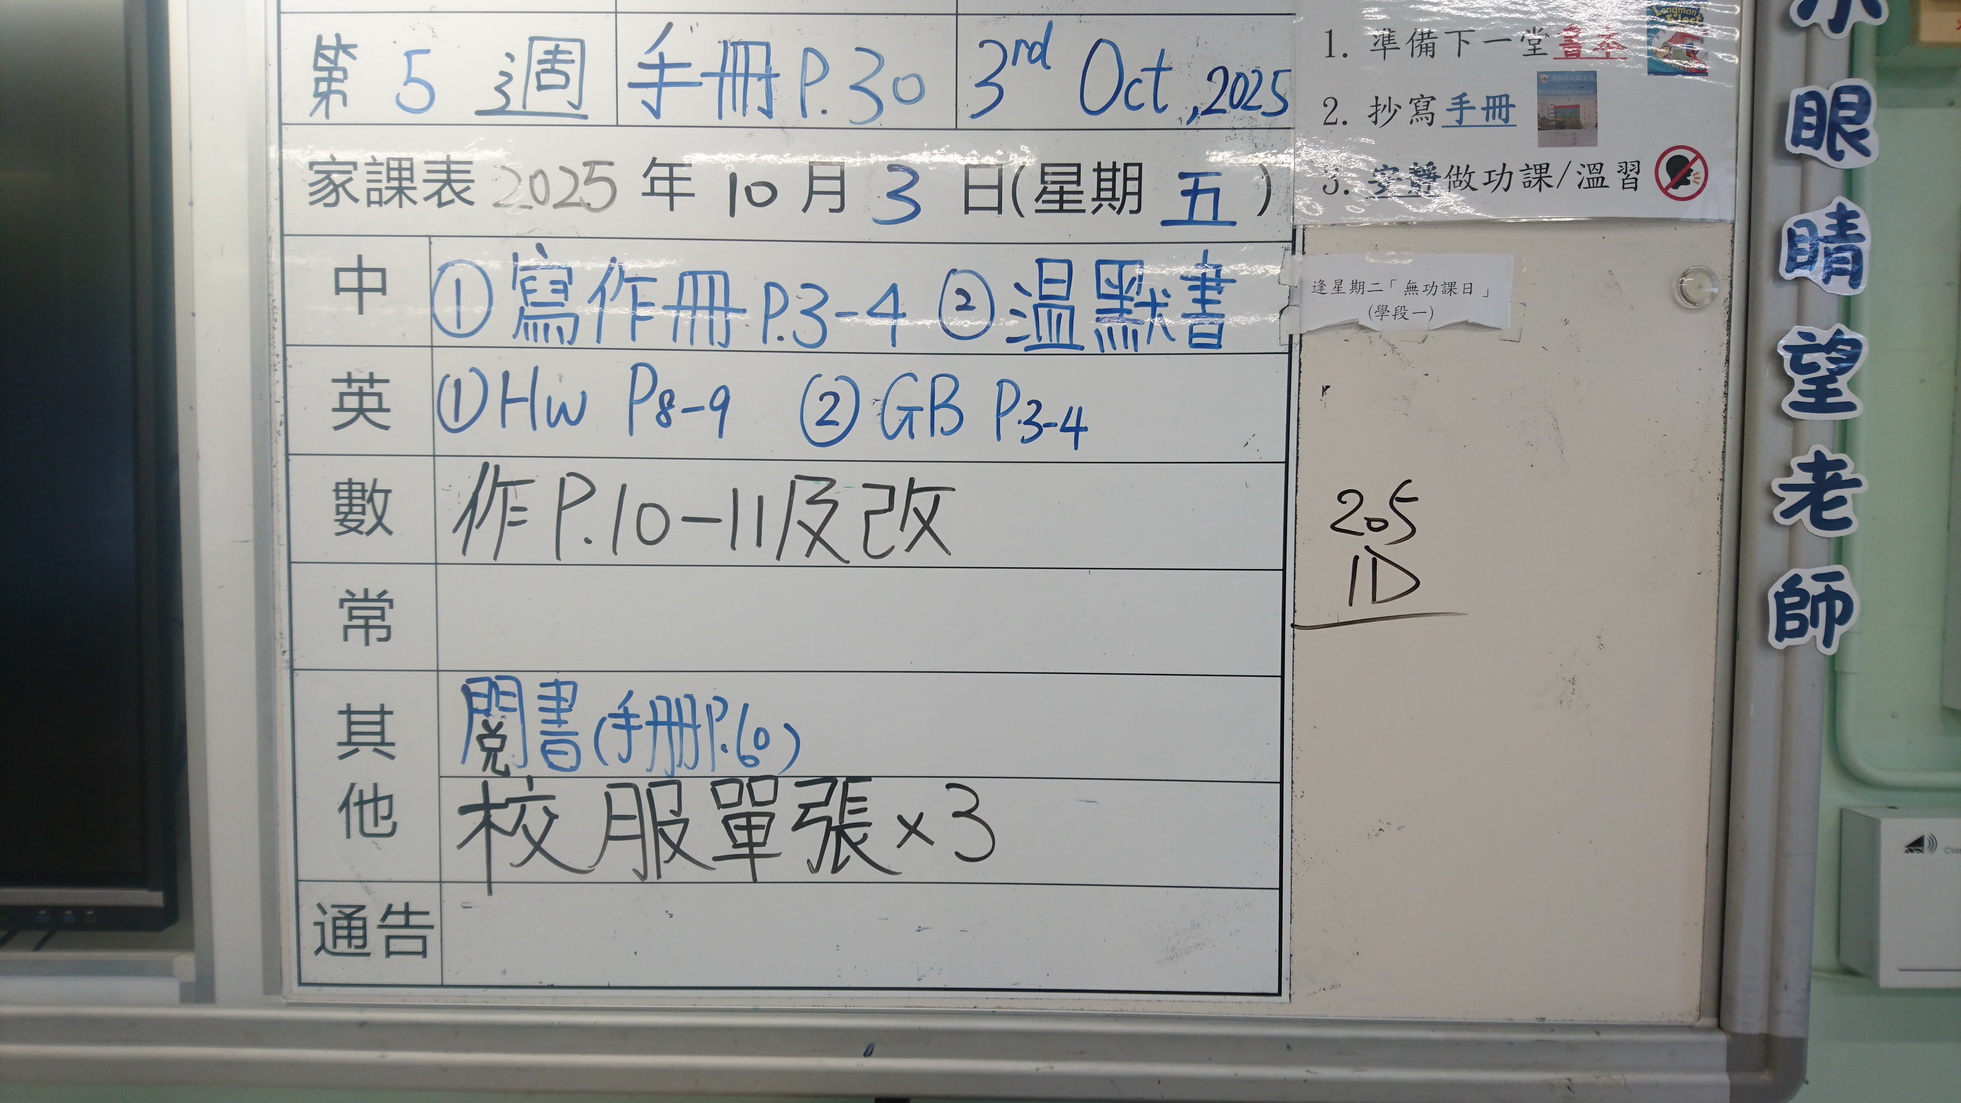 第 5 週 手冊 P.30 3rd Oct, 2025
家課表 2025 年 10 月 3 日(星期 五 )
中 ① 寫作冊 P.3-4 ② 温默書
英 ① HW P8-9 ② GB P.3-4
數 作 P.10-11 及改
常
其他 閱書(手冊P.60)
校服單張×3
通告
1. 準備下一堂書本
2. 抄寫手冊
3. 安靜做功課/溫習
逢星期二「無功課日」
(學段一)
205
1D
眼睛望老師